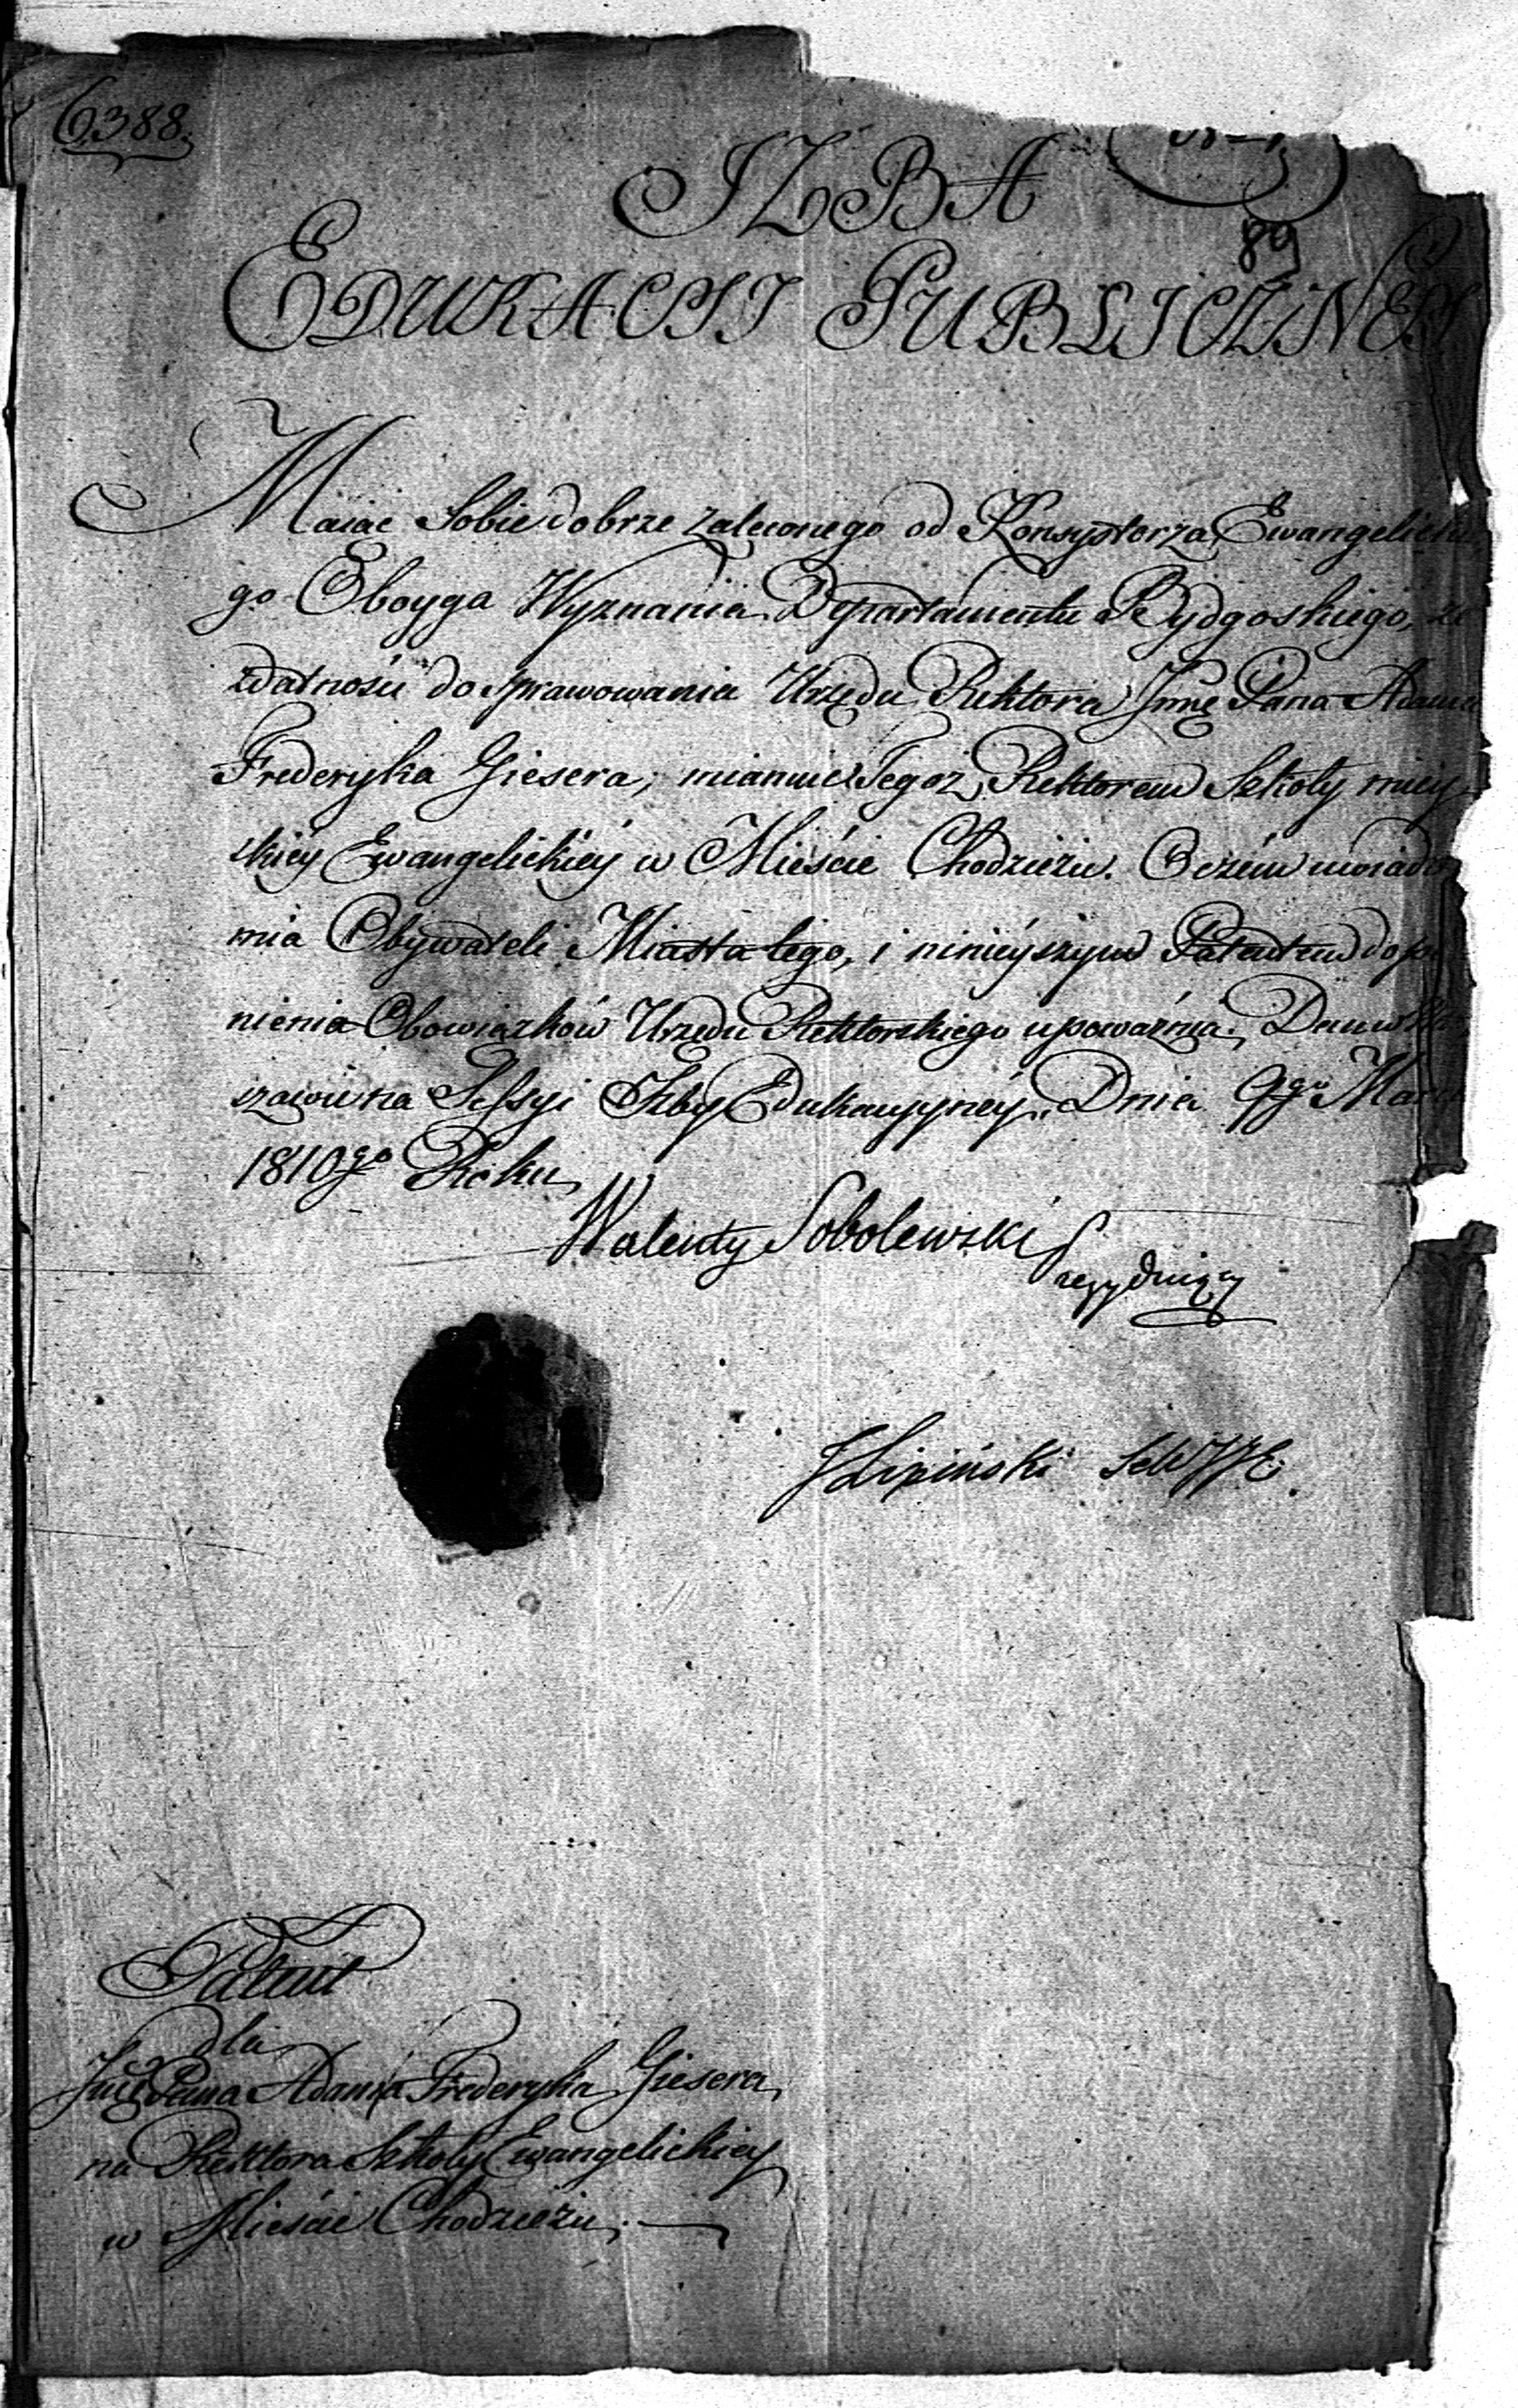 6388.
IZBA
89
EDUKACYI PUBLICZNEY
Maiąc Sobie dobrze zaleconego od Konsystorza Ewangelickie
go Oboyga Wyznania Departamentu Bydgoskiego, ze
zdatności do sprawowania Urzędu Rektora Jmć Pana Adama
Frederyka Giesera, mianuie Tegoż Rektorem Szkoły miey
skiey Ewangelickiéy w Mieście Chodzieżu. O czém uwiado
mia Obywateli Miasta tego, i ninieyszym Patentem do peł
nienia Obowiązków Urzędu Rektorskiego upoważnia. Dan w War
szawie na Sessyi Izby Edukacyyney. Dnia 9go Marca
1810go Roku
Walenty Sobolewski Prezyduiący
J Lipiński
Patent
dla
Jmć Pana Adama Frederyka Giesera
na Rektora Szkoły Ewangelickiey
w Mieście Chodzieżu.